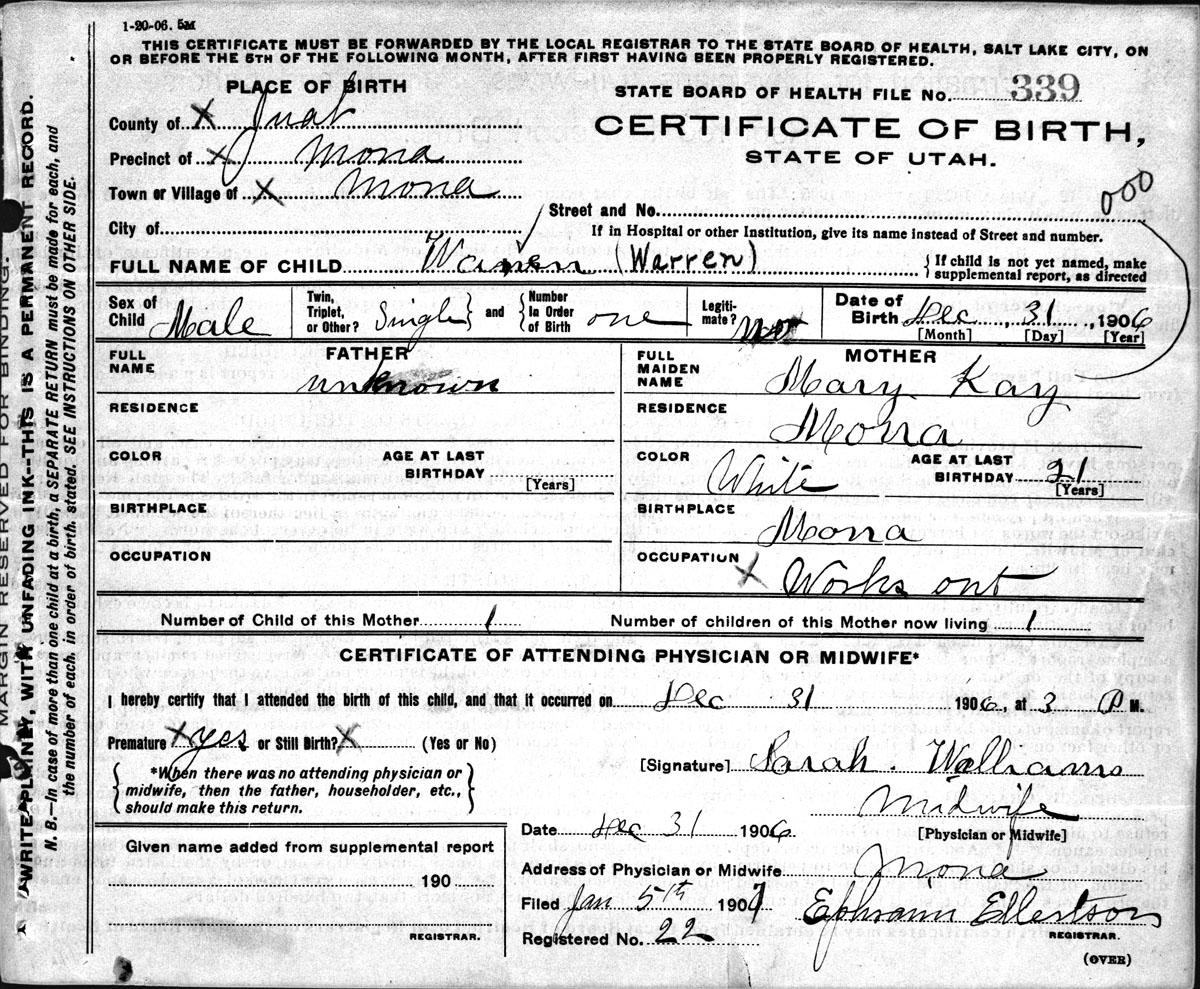 1-20-06. 5M
THIS CERTIFICATE MUST BE FORWARDED BY THE LOCAL REGISTRAR TO THE STATE BOARD OF HEALTH, SALT LAKE CITY, ON
OR BEFORE THE 5TH OF THE FOLLOWING MONTH, AFTER FIRST HAVING BEEN PROPERLY REGISTERED.
PLACE OF BIRTH
STATE BOARD OF HEALTH FILE No. 339
County of X Juab
CERTIFICATE OF BIRTH,
Precinct of X Mona
STATE OF UTAH.
Town or Village of X Mona
000
Street and No.
City of
If in Hospital or other Institution, give its name instead of Street and number.
FULL NAME OF CHILD Warren (Warren) { If child is not yet named, make
supplemental report, as directed
Sex of Child Male
Twin, Triplet, or Other? Single } and { Number In Order of Birth one
Legiti-mate? not
Date of Birth Dec, 31, 1906
[Month] [Day] [Year]
FATHER
FULL NAME unknown
RESIDENCE
COLOR AGE AT LAST BIRTHDAY [Years]
BIRTHPLACE
OCCUPATION
MOTHER
FULL MAIDEN NAME Mary Kay
RESIDENCE Mona
COLOR White AGE AT LAST BIRTHDAY 21 [Years]
BIRTHPLACE Mona
OCCUPATION X Works out
Number of Child of this Mother 1 Number of children of this Mother now living 1
CERTIFICATE OF ATTENDING PHYSICIAN OR MIDWIFE*
I hereby certify that I attended the birth of this child, and that it occurred on Dec 31 1906, at 3 P M.
Premature X yes or Still Birth? X (Yes or No)
{ *When there was no attending physician or
midwife, then the father, householder, etc.,
should make this return. }
[Signature] Sarah. Williams
Midwife
[Physician or Midwife]
Date Dec 31 1906.
Address of Physician or Midwife Mona
Filed Jan 5th 1907 Ephraim Ellertson
REGISTRAR.
Registered No. 22
(OVER)
Given name added from supplemental report
190
REGISTRAR.
MARGIN RESERVED FOR BINDING.
WRITE PLAINLY, WITH UNFADING INK-THIS IS A PERMANENT RECORD.
N. B.—In case of more than one child at a birth, a SEPARATE RETURN must be made for each, and
the number of each, in order of birth, stated. SEE INSTRUCTIONS ON OTHER SIDE.